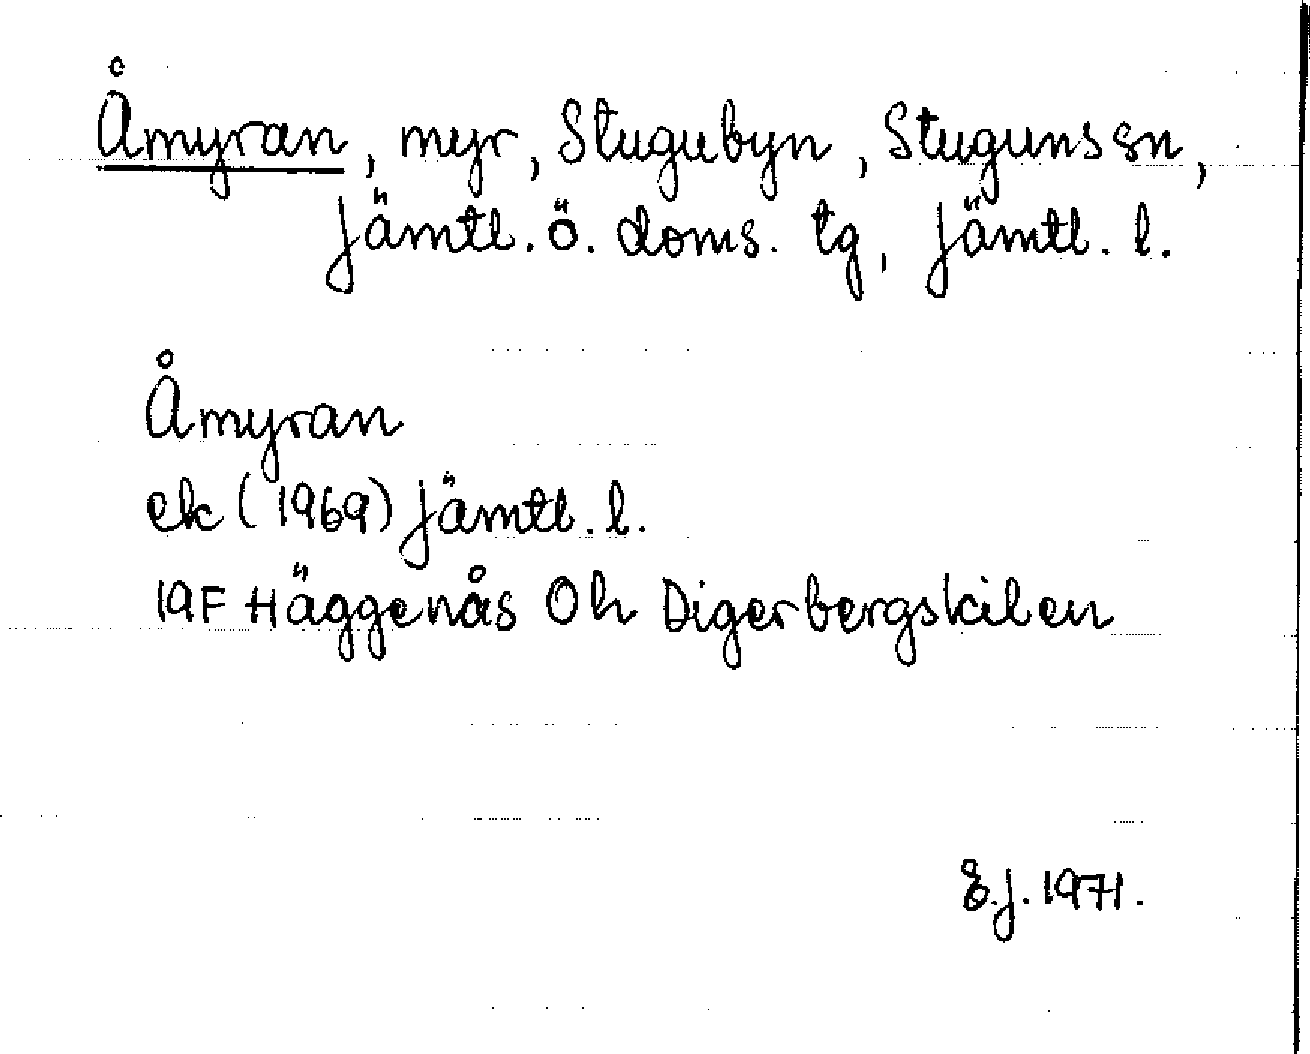 Åmyran, myr, Stugubyn, Stuguns sn,
Jämtl. ö. doms. tg, Jämtl. l.
Åmyran
ek (1969) Jämtl. l.
19F Häggenås 0h Digerbergskilen
E.J. 1971.